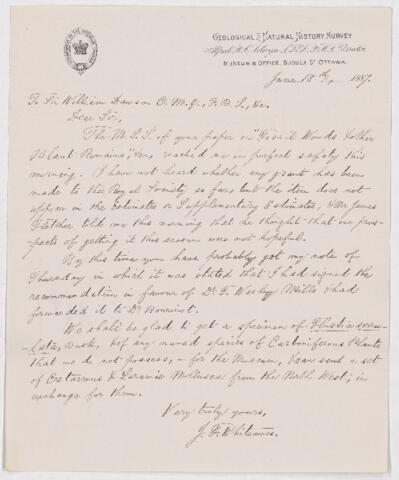 GEOLOGICAL & NATURAL HISTORY SURVEY
Alfred R. C. Selwyn, L.L.D. F.R.S. Director
MUSEUM & OFFICE, SUSSEX ST OTTAWA.
June 18th, 1887.
To Sir William Dawson C.M.G., F.R.S., &c.
Dear Sir,
The M.S.S. of your paper on "Fossil Woods & other
Plant Remains," &c, reached me in perfect safety this
morning. I have not heard whether any grant has been
made to the Royal Society so far, but the item does not
appear in the Estimates or Supplementary Estimates, & Mr James
Fletcher told me this morning that he thought that our pros-
pects of getting it this season was not hopeful.
By this time you have probably got my note of
Thursday in which it was stated that I had signed the
recommendation in favour of Dr. T. Wesley Mills & had
forwarded it to Dr Bourinot.
We shall be glad to get a specimen of
Dush, & of any named species of Carboniferous Plants
that we do not possess, - for the Museum, & can send a set
of Cretaceous & Laramie Mollusca from the North West, in
exchange for them.
Very truly yours,
J. F. Whiteaves.